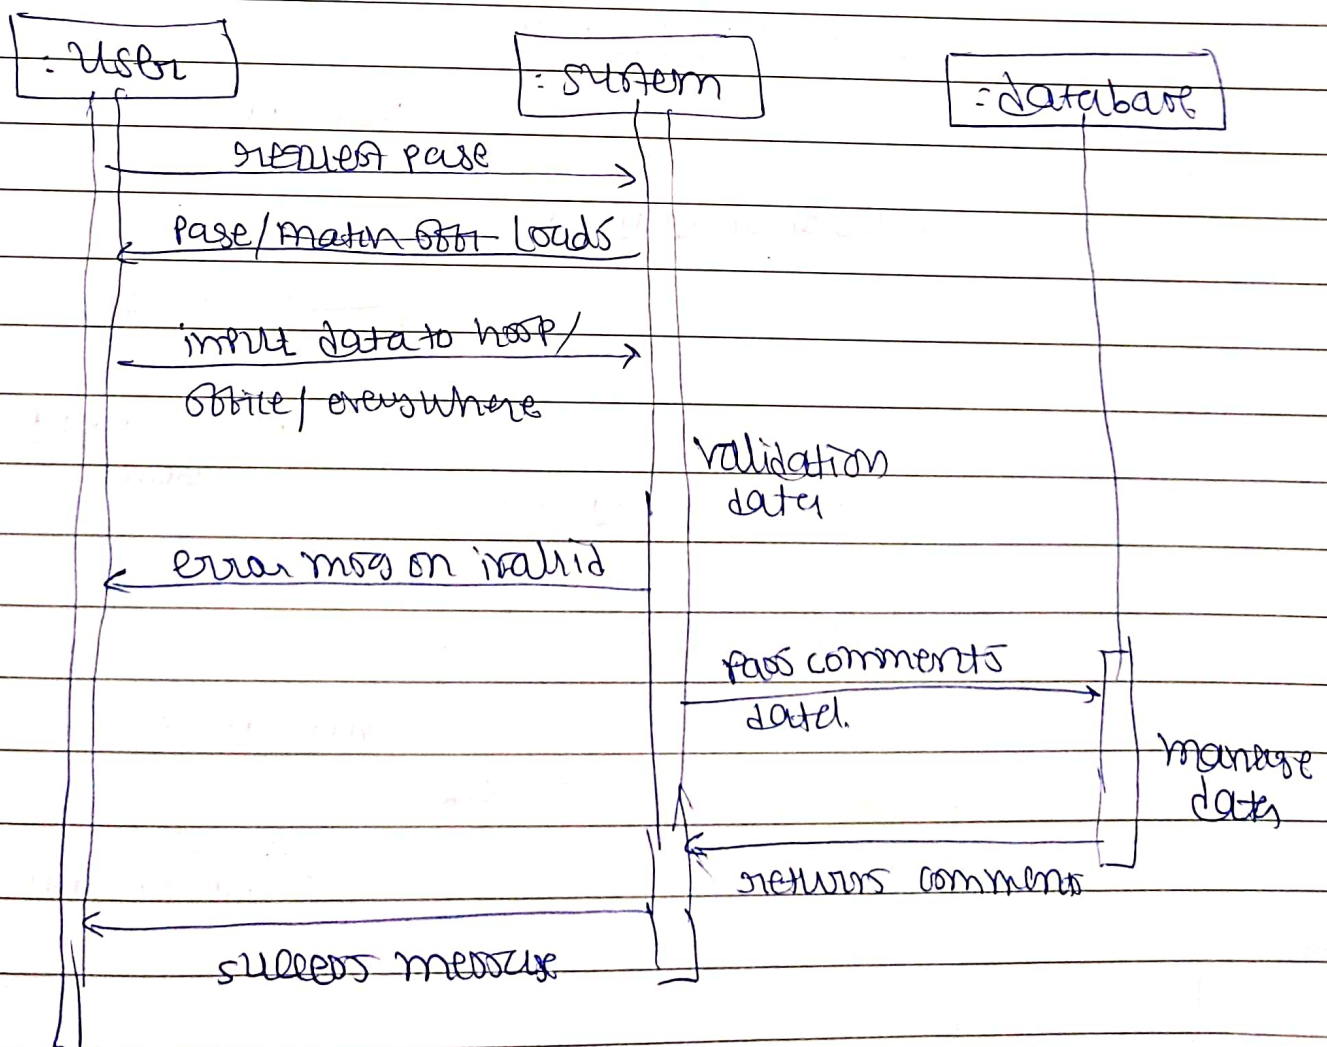 : User
: system
: database
request page
page/match offer loads
input data to hosp/
office/everywhere
validation
data
error msg on ivalid
pass comments
data.
manage
data
returns comments
success message